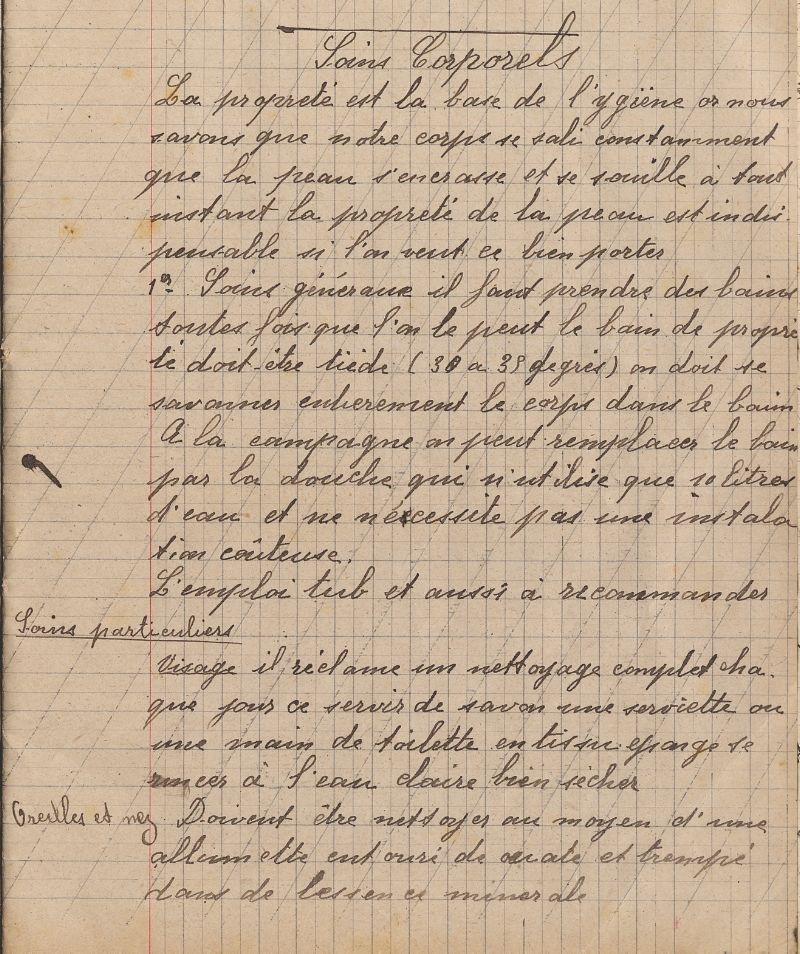 Soins Corporels
La propreté est la base de l'ygiène or nous
savons que notre corps se sali constamment
que la peau s'encrasse et se souille à tout
instant la propreté de la peau est indis-
pensable si l'on veut ce bien porter
1er Soins généraux il faut prendre des bains
toutes fois que l'on le peut le bain de propre
té doit être tiède (30 a 35 degrés) on doit se
savonner entierement le corps dans le bain
A la campagne on peut remplacer le bain
par la douche qui n'utilise que 10 litres
d'eau et ne nécessite pas une instala
tion coûteuse.
L'emploi tub et aussi à recommander
Soins particuliers
Visage il réclame un nettoyage complet cha-
que jour ce servir de savon une serviette ou
une main de toilette en tissu eponge se
rincer à l'eau claire bien sècher
Oreilles et nez Doivent être nettoyer au moyen d'une
allumette entouré de ouate et trempé
dans de lessence minerale